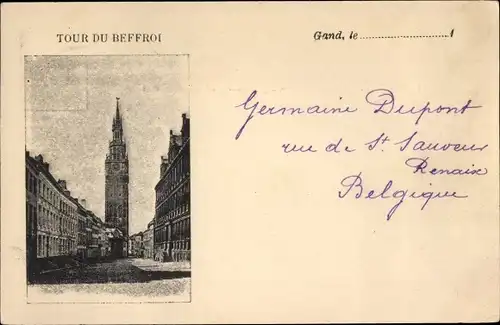 TOUR DU BEFFROI
Gand, le .......................... 1
Germaine Dupont
rue de St Sauveur
Renaix
Belgique